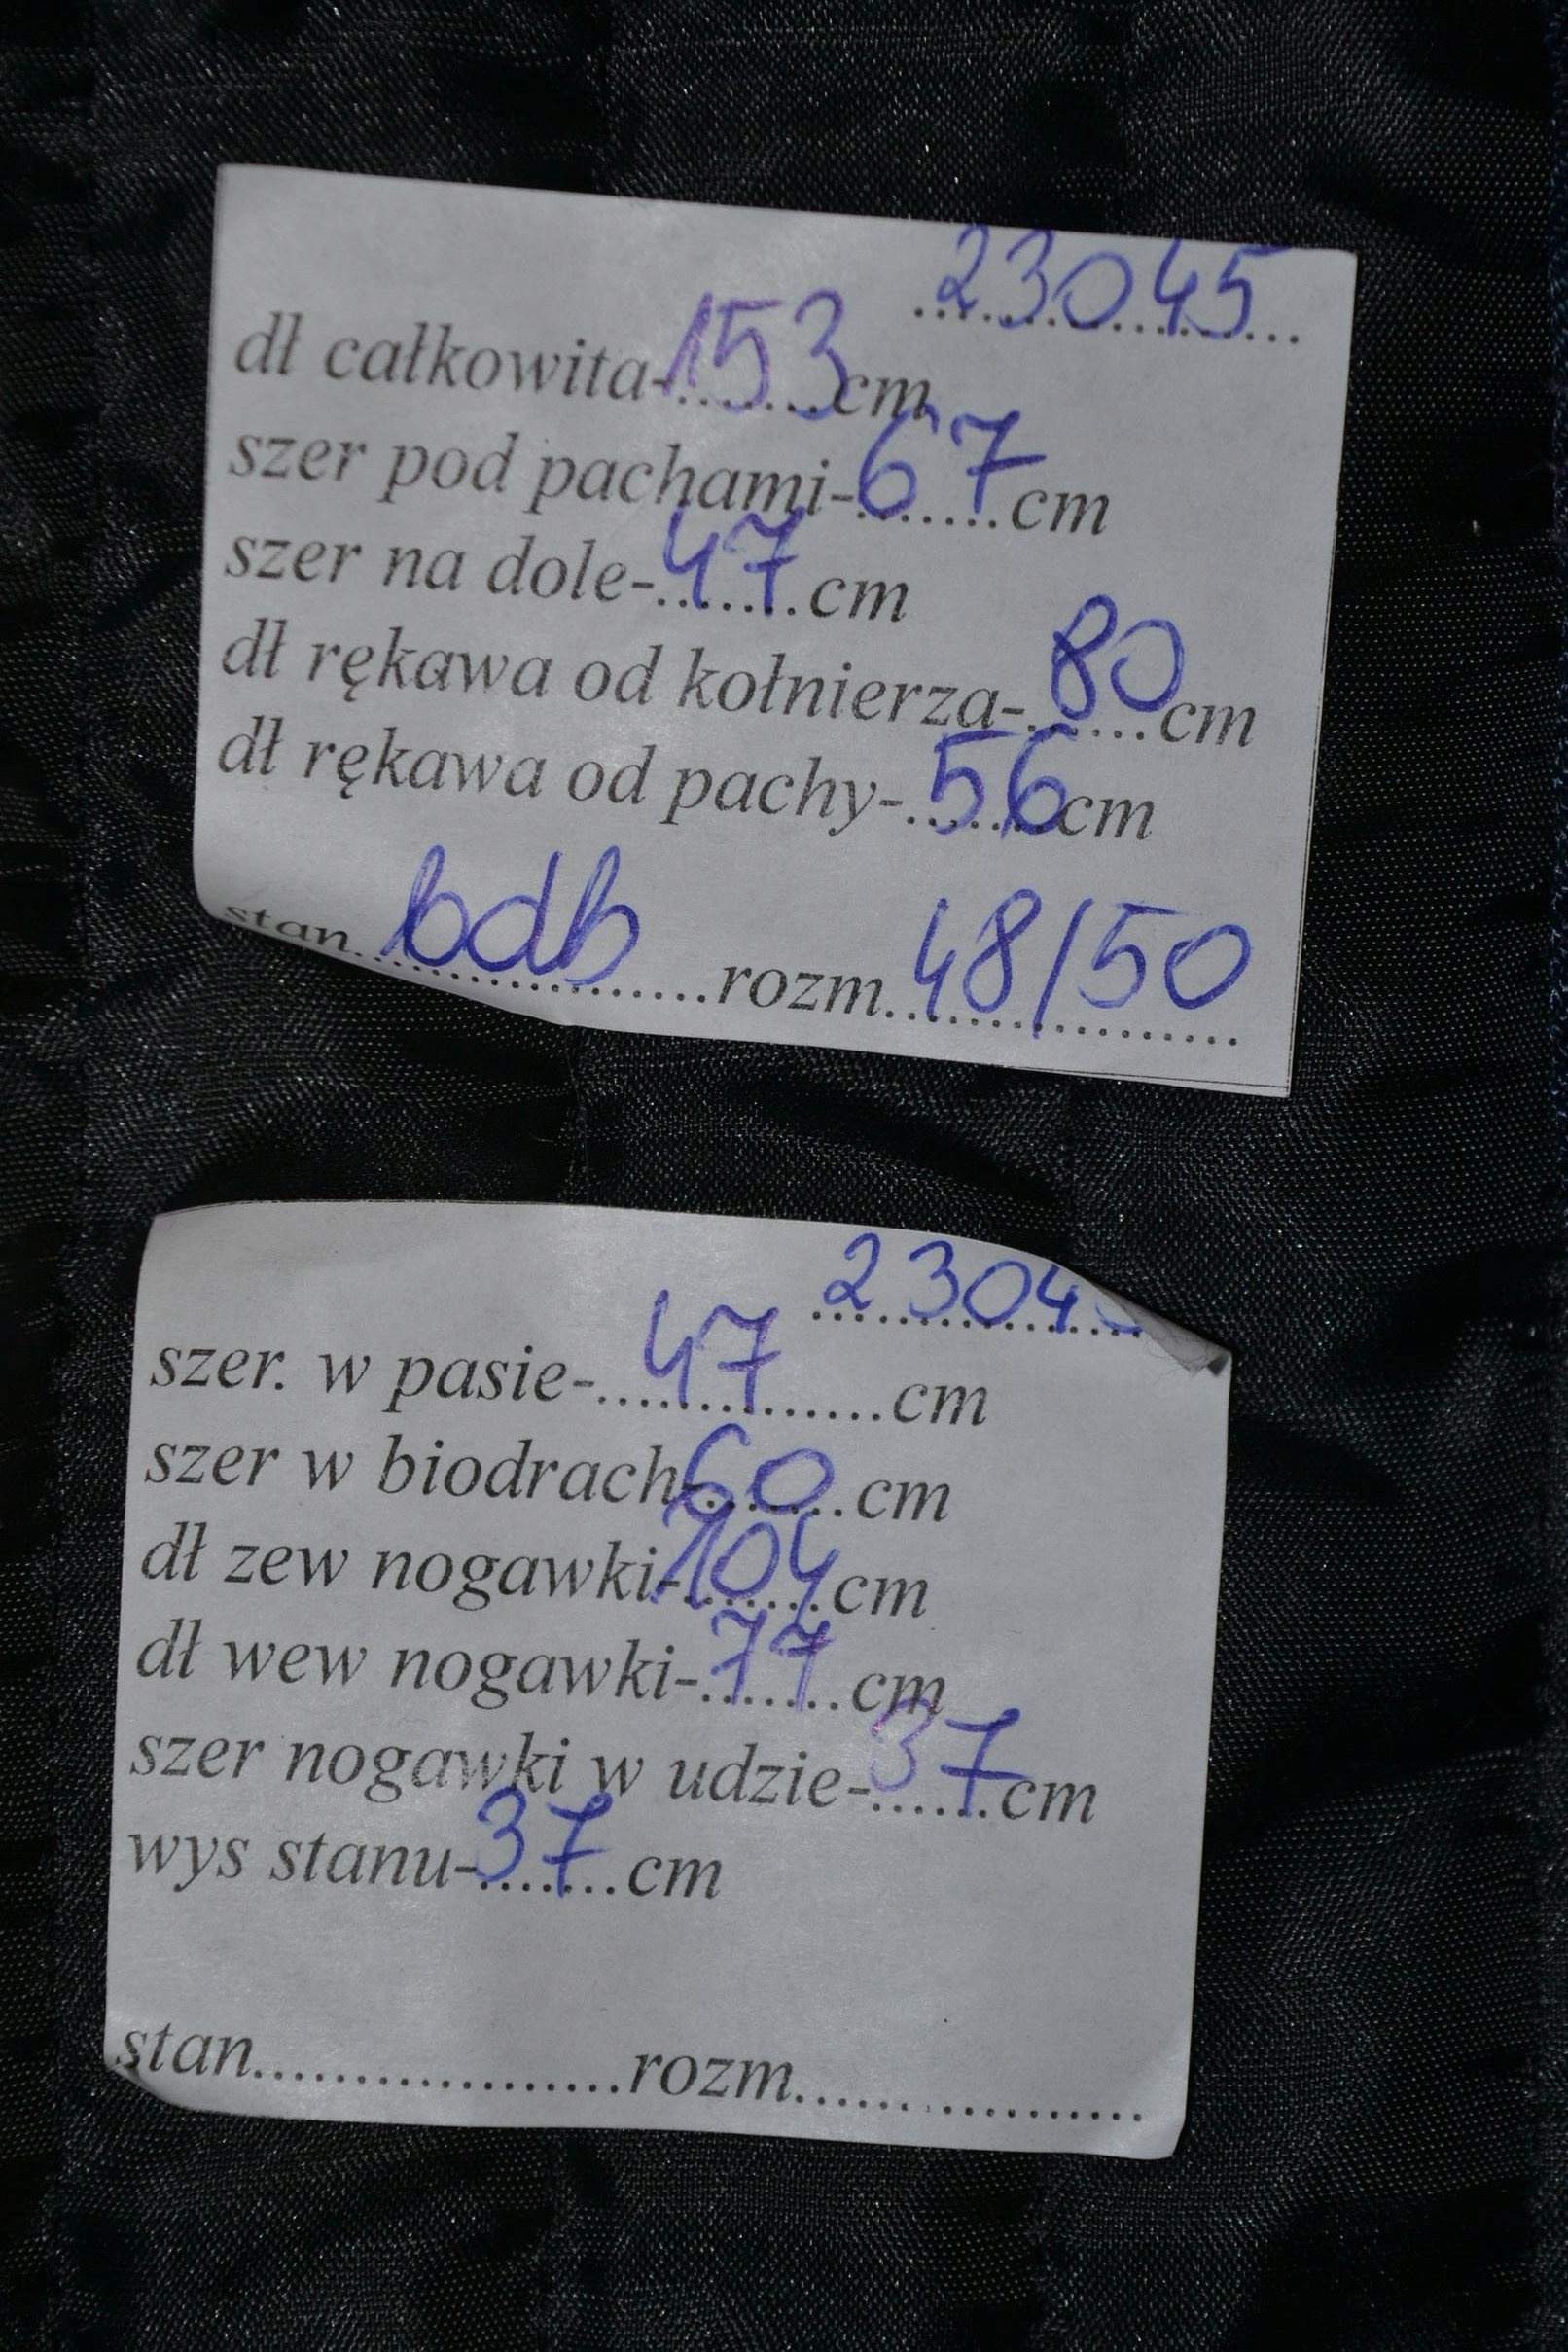 23045
dł całkowita-153cm
szer pod pachami-67cm
szer na dole-47cm
dł rękawa od kołnierza-80cm
dł rękawa od pachy-56cm
stan bdb rozm. 48/50
2304
szer. w pasie-47 cm
szer w biodrach-60cm
dł zew nogawki-104cm
dł wew nogawki-77cm
szer nogawki w udzie-37cm
wys stanu-37cm
stan....................rozm...................